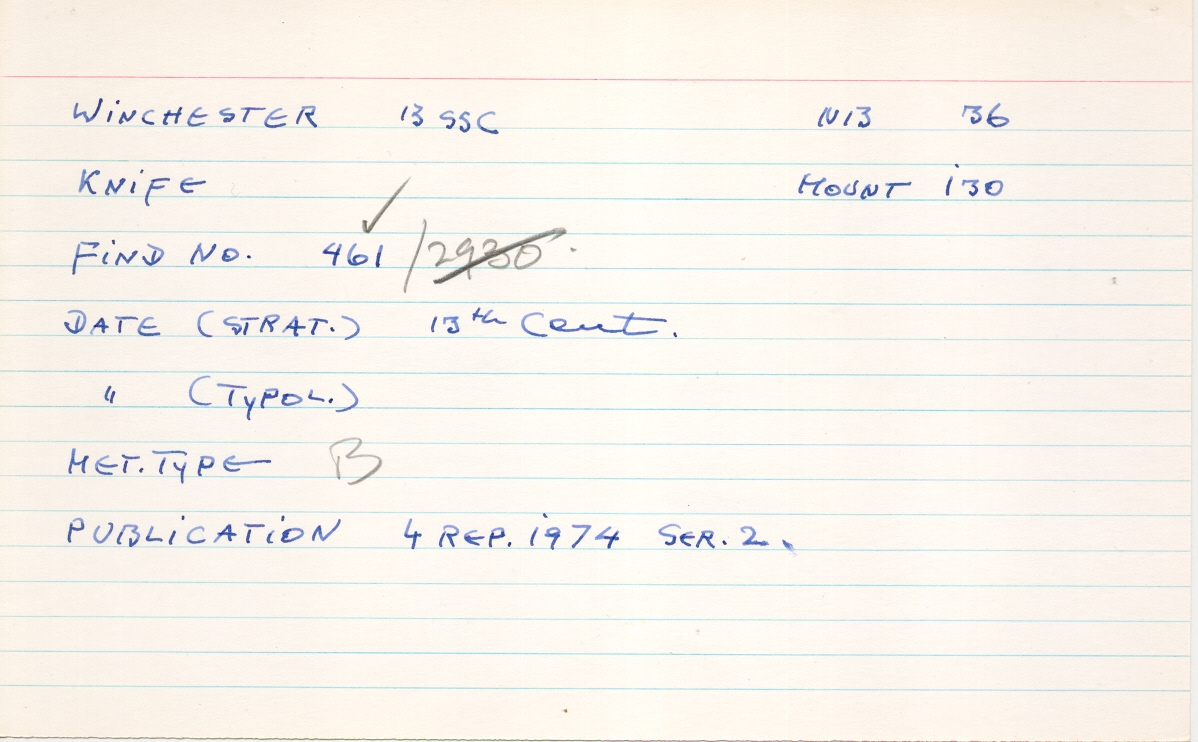 WINCHESTER 13 SSC N13 36
KNIFE MOUNT 130
FIND NO. 461 /2930.
DATE (STRAT.) 13th Cent.
" (TYPOL.)
MET. TYPE B
PUBLICATION 4 REP. 1974 SER. 2.